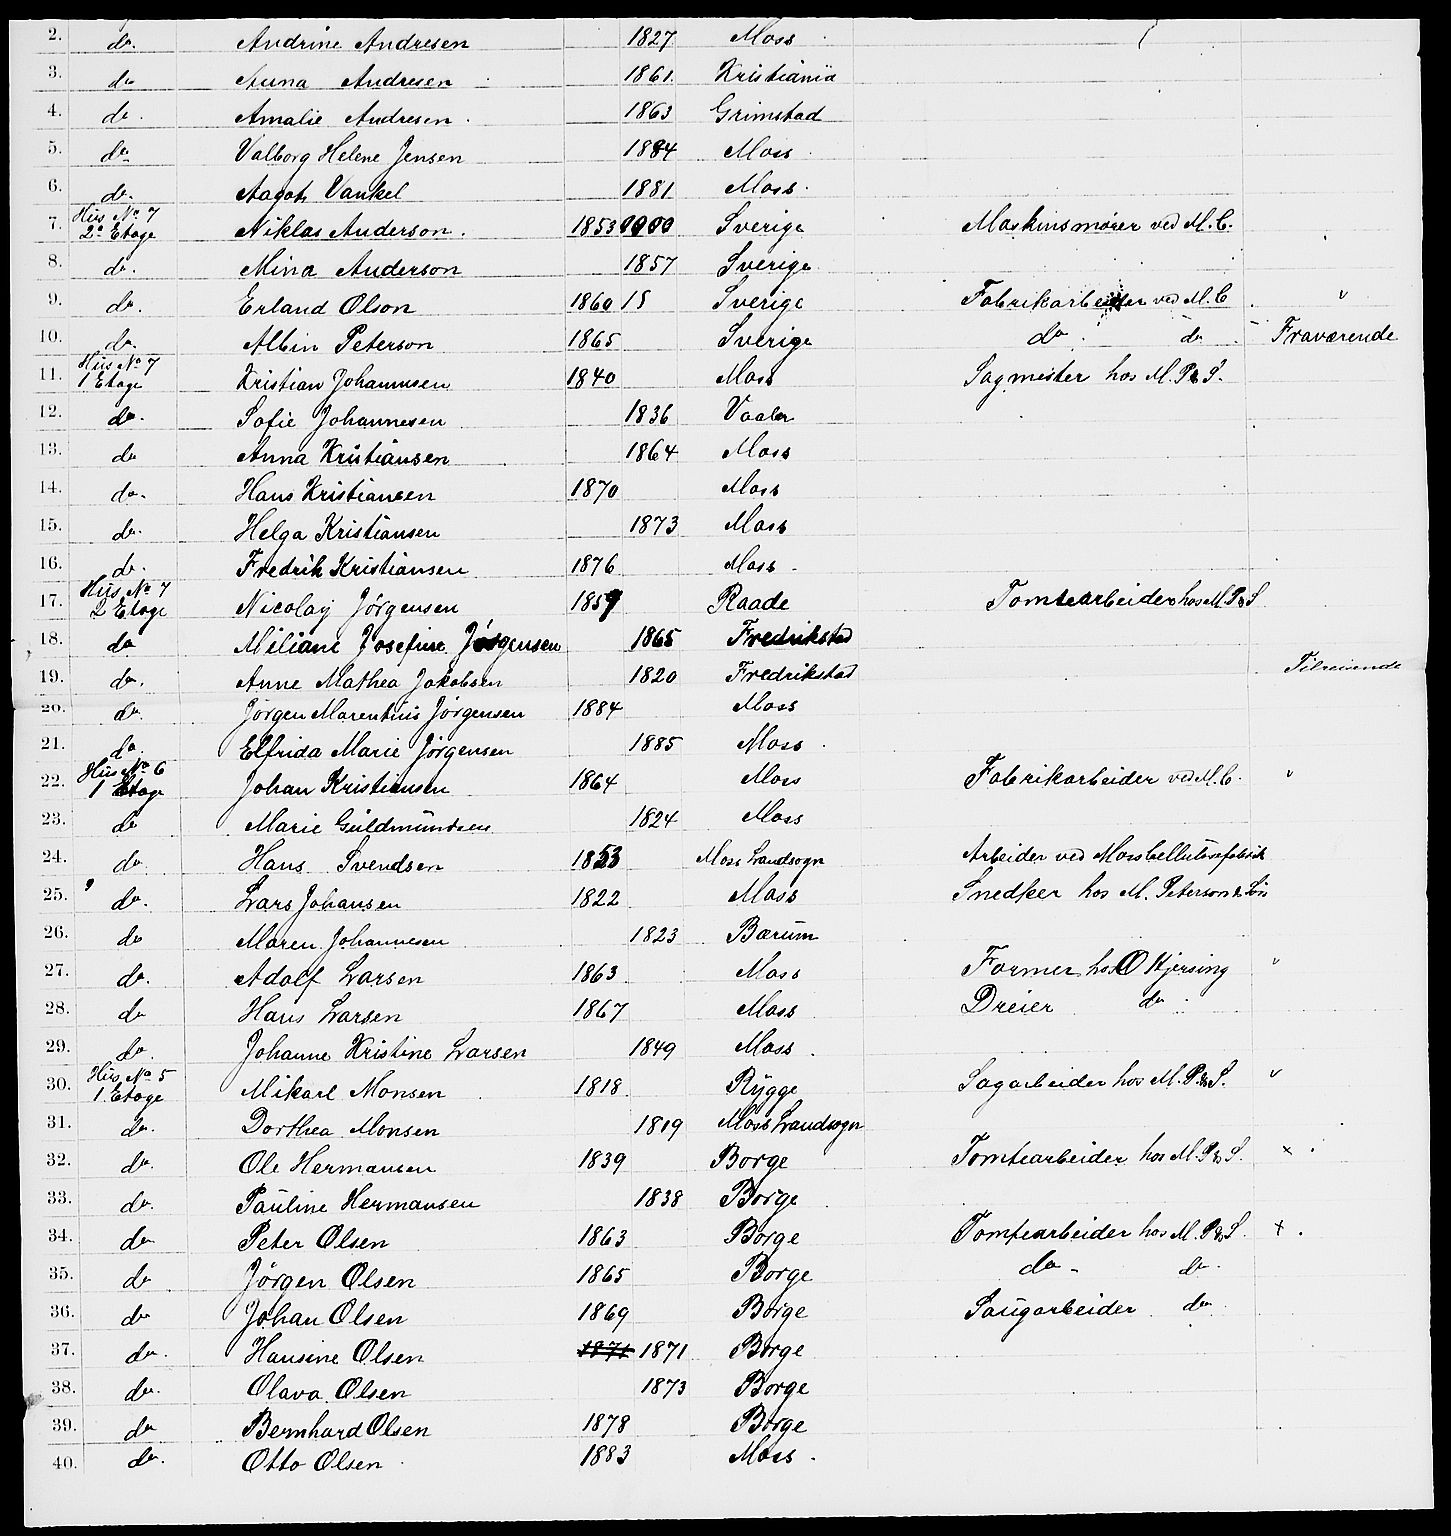 2. do. Andrine Andresen 1827 Moss
3. do Anna Andresen 1861. Kristiania
4. do. Amalie Andresen. 1863 Grimstad
5. do Valborg Helene Jensen 1884 Moss
6. do. Aagot Vankel 1881 Moss.
7. Hus No. 7 2. Etage Niklas Anderson. 1853 Sverige Maskinsmører ved M.C.
8. do. Mina Anderson 1857 Sverige
9. do. Erland Olson 1860 15 Sverige Fabrikarbeider ved M.C. "
10. do. Albin Peterson 1865 Sverige do. do - Fraværende
11. Hus No 7 1 Etage Kristian Johannesen 1840 Moss Sagmester hos M. P & S.
12. do. Sofie Johannesen 1836 Vaaler
13. do Anna Kristiansen 1864 Moss
14. do. Hans Kristiansen 1870 Moss
15. do. Helga Kristiansen 1873 Moss
16. do. Fredrik Kristiansen 1876 Moss.
17. Hus No 7 2 Etage Nicolaÿ Jörgensen 1859 Raade Tomtearbeider hos M. P & S
18. do Miliane Josefine Jörgensen 1865 Fredrikstad
19. do. Anne Mathea Jakobsen 1820 Fredrikstad Tilreisende
20. do. Jörgen Marentius Jörgensen 1884 Moss
21. do. Elfrida Marie Jörgensen 1885 Moss.
22. Hus No 6 1 Etage Johan Kristiansen 1864 Moss Fabrikarbeider ved M.C. "
23. do Marie Guldmundsen 1824 Moss
24. do. Hans Svendsen 1853 Moss Landsogn Arbeider ved Moss Cellulosefabrik
25. do. Lars Johansen 1822 Moss Snedker hos M. Peterson & Søn
26. do Maren Johannesen 1823 Bærum
27. do. Adolf Larsen 1863 Moss Former hos O Kjersing "
28. do Hans Larsen 1867 Moss Dreier do
29. do. Johanne Kristine Larsen 1849 Moss.
30. Hus No 5 1. Etage Mikael Monsen 1818 Rygge Sagarbeider hos M. P. & S. "
31. do. Dorthea Monsen 1819 Moss Landsogn
32. do. Ole Hermansen 1839 Borge Tomtearbeider hos M. P & S. x .
33. do. Pauline Hermansen 1838 Borge
34. do Peter Olsen 1863 Borge Tomtearbeider hos M. P & S. x .
35. do Jörgen Olsen 1865 Borge do - do.
36. do Johan Olsen 1869 Borge Saugarbeider do
37. do. Hansine Olsen 1871 1871 Borge
38. do. Olava Olsen 1873 Borge
39. do Bernhard Olsen 1878 Borge
40. do. Otto Olsen 1883 Moss.